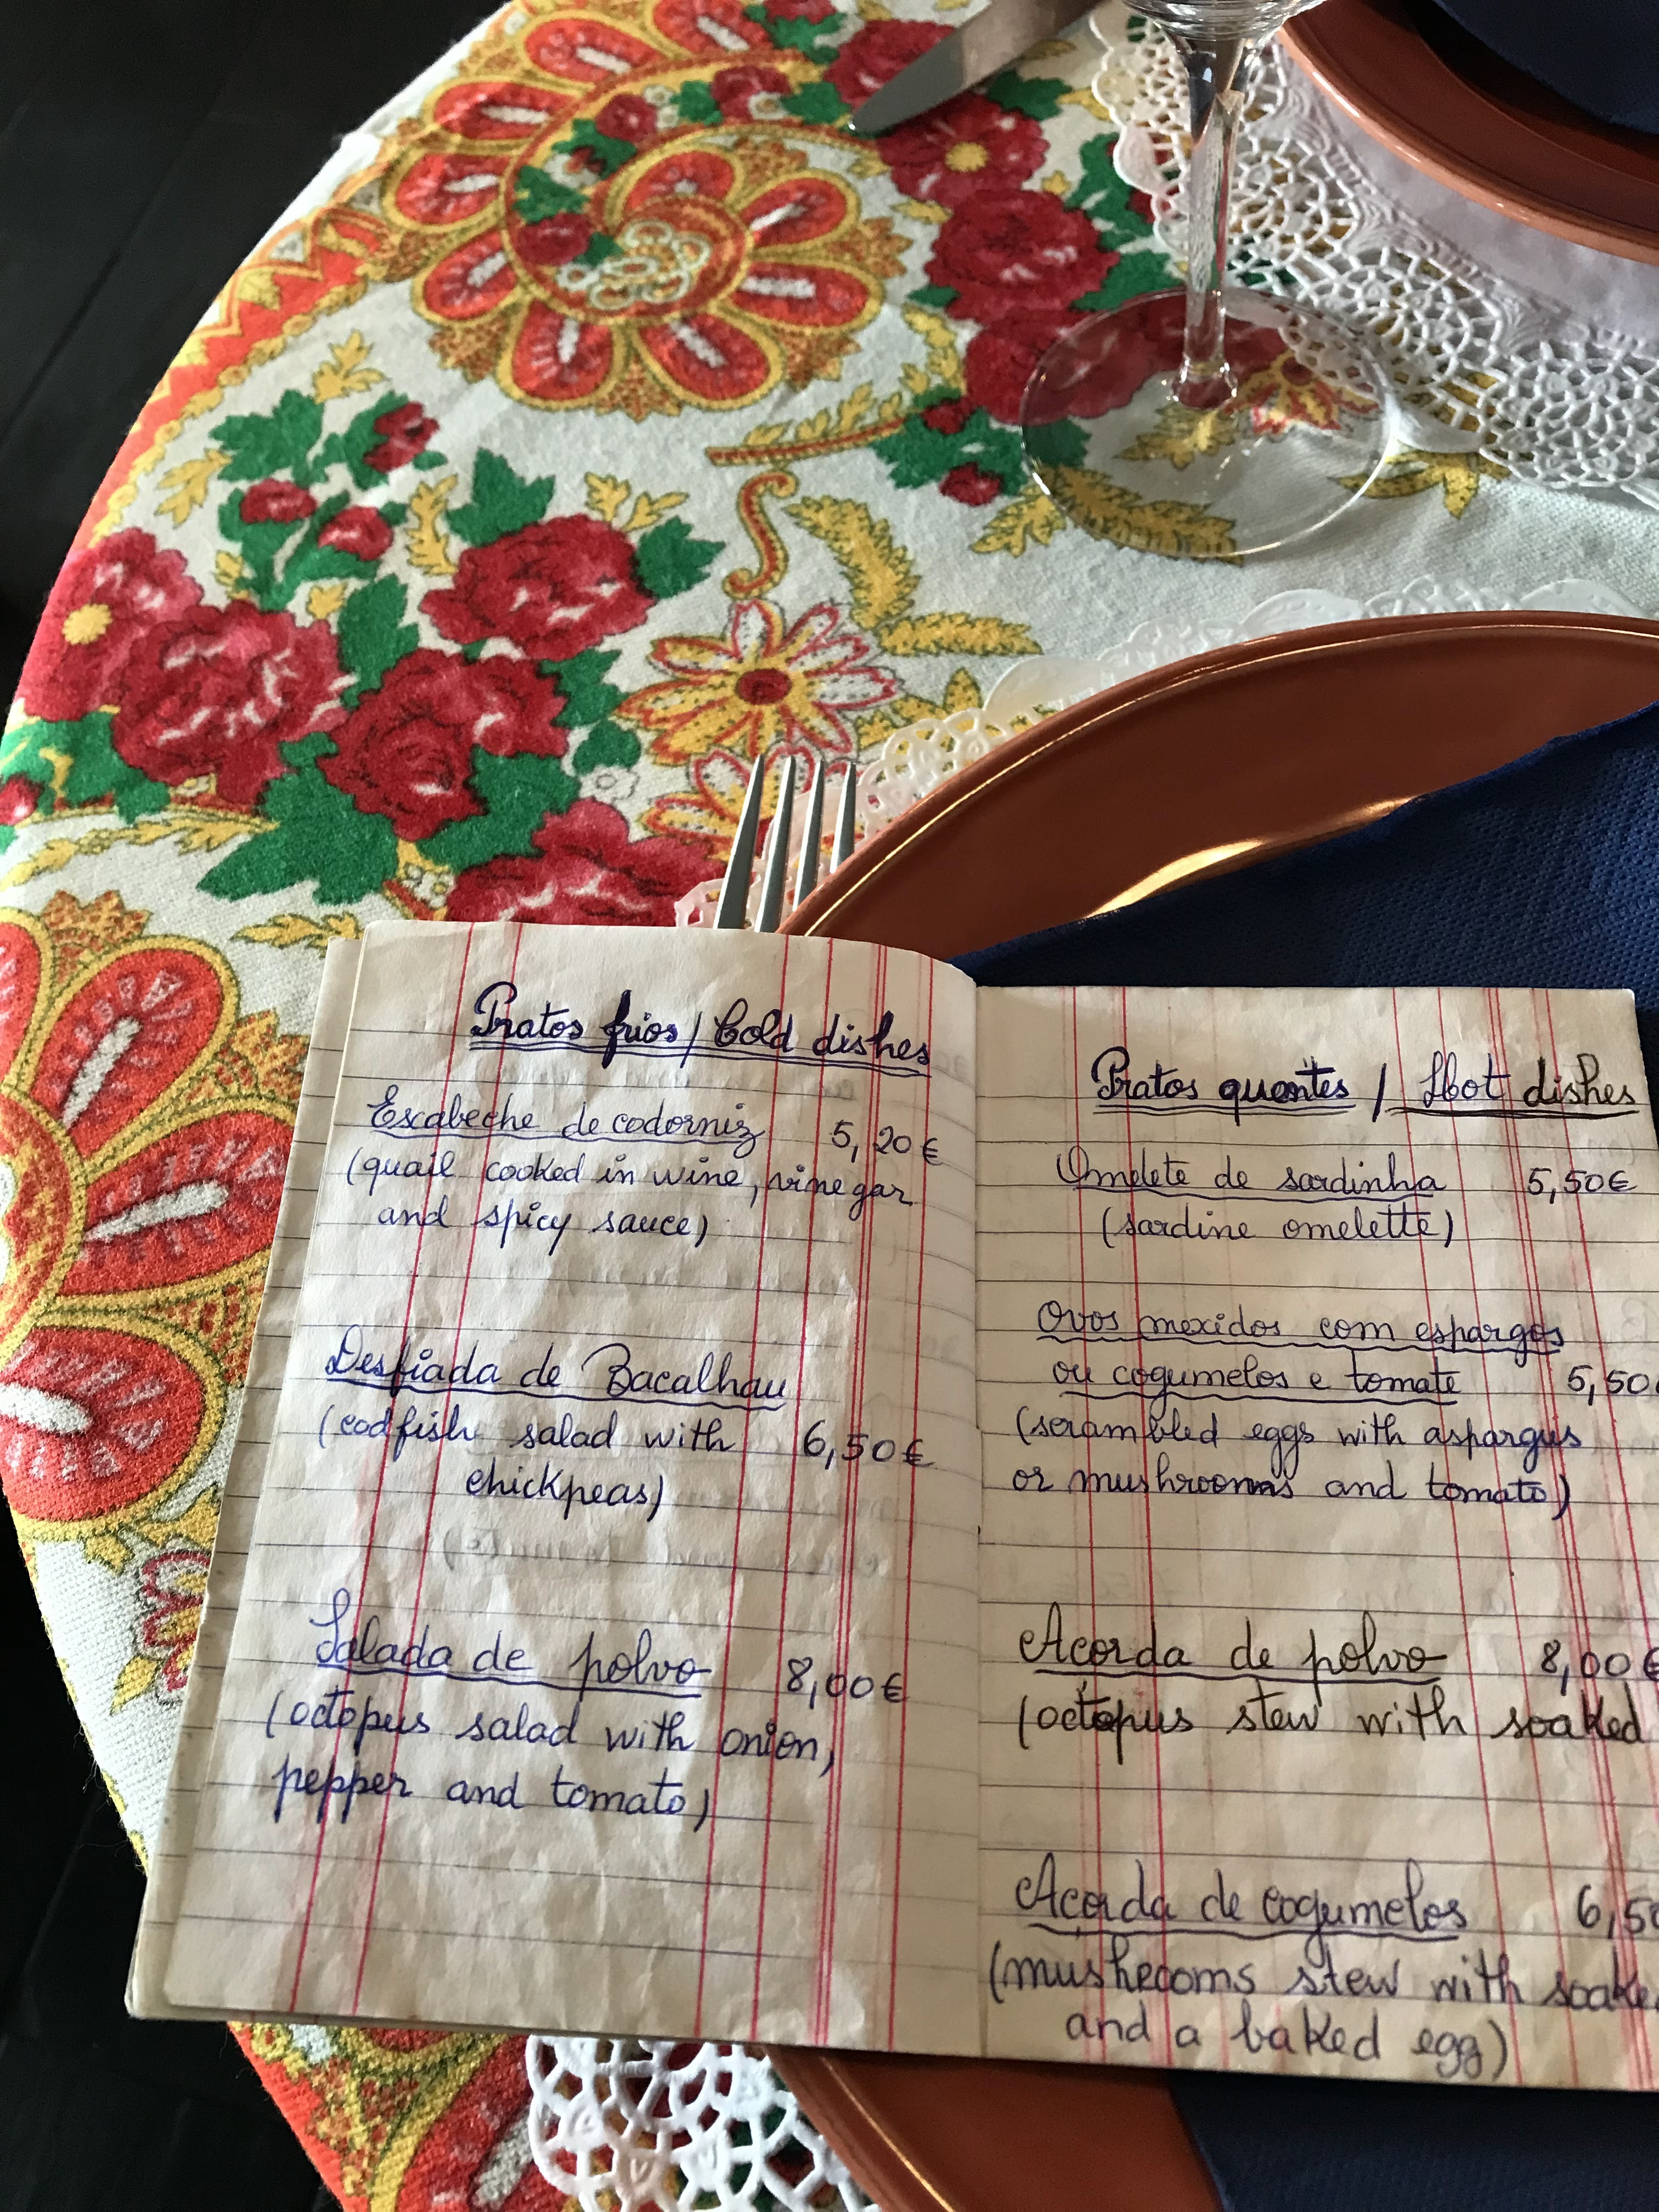 Pratos frios / Cold dishes
Escabeche de codorniz 5,20€
(quail cooked in wine, vinegar
and spicy sauce)
Desfiada de Bacalhau
(codfish salad with 6,50€
chickpeas)
Salada de polvo 8,00€
(octopus salad with onion,
pepper and tomato)
Pratos quentes / Hot dishes
Omelete de sardinha 5,50€
(sardine omelette)
Ovos mexidos com espargos
ou cogumelos e tomate 5,50€
(scrambled eggs with aspargus
or mushrooms and tomato)
Açorda de polvo 8,00€
(octopus stew with soaked
Açorda de cogumelos 6,50
(mushrooms stew with soake
and a baked egg)